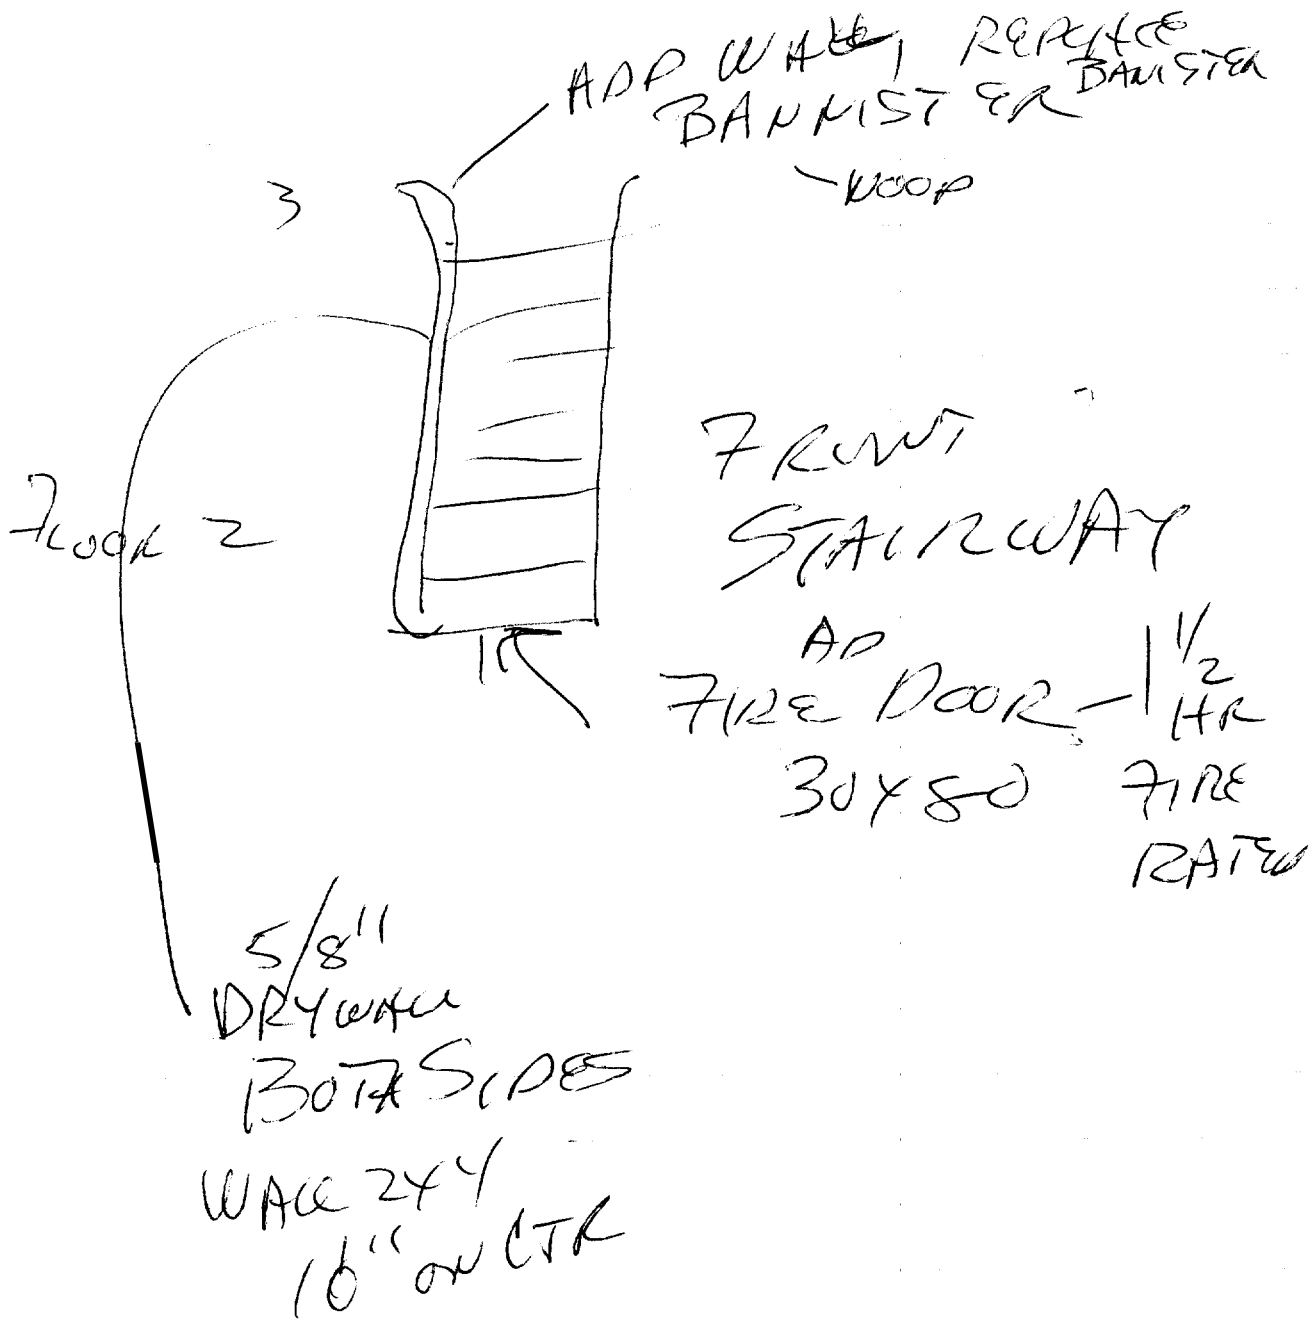 ADD WALL, REPLACE
BANNISTER BANISTER
WOOD
3
FLOOR 2
FRONT
STAIRWAY
AD
FIRE DOOR - 1 1/2
HR
30X80 FIRE
RATED
5/8"
DRYWALL
BOTH SIDES
WALL 2X4
16" ON CTR